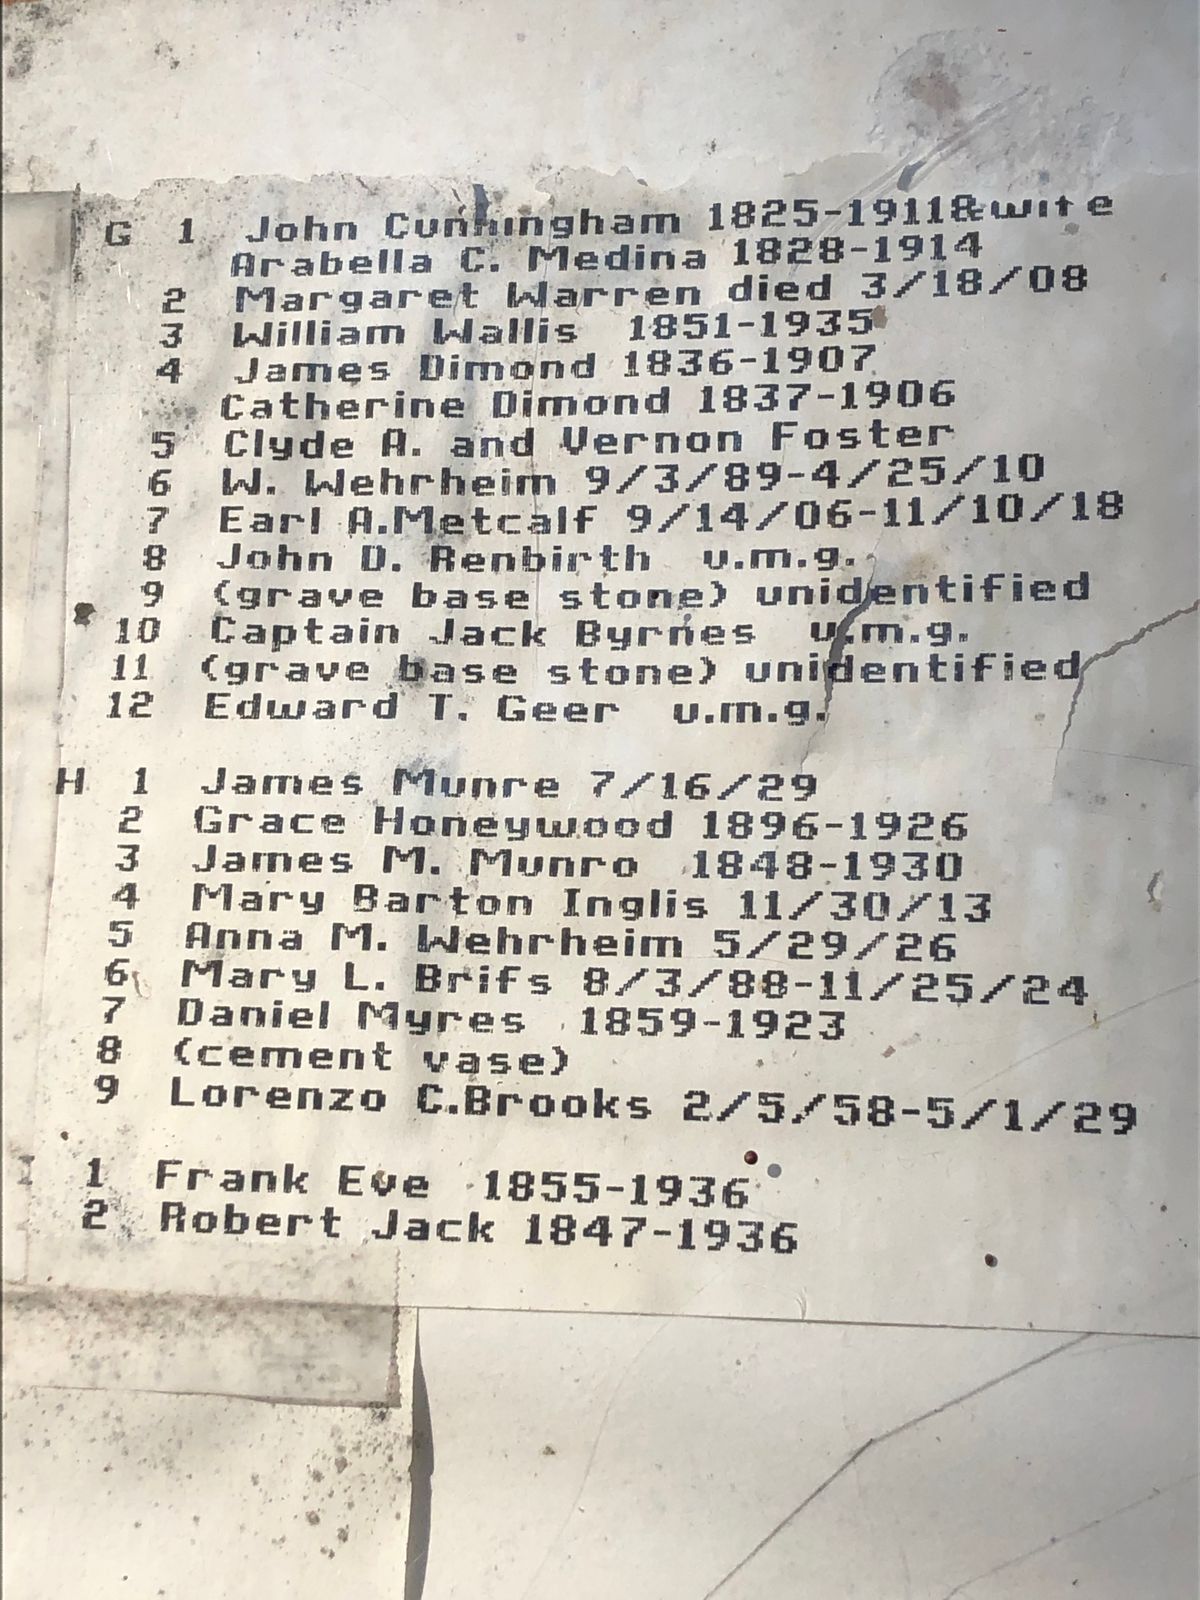 G 1 John Cunningham 1825-1911&wife
Arabella C. Medina 1828-1914
2 Margaret Warren died 3/18/08
3 William Wallis 1851-1935
4 James Dimond 1836-1907
Catherine Dimond 1837-1906
5 Clyde A. and Vernon Foster
6 W. Wehrheim 9/3/89-4/25/10
7 Earl A.Metcalf 9/14/06-11/10/18
8 John D. Renbirth u.m.g.
9 (grave base stone) unidentified
10 Captain Jack Byrnes u.m.g.
11 (grave base stone) unidentified
12 Edward T. Geer u.m.g.
H 1 James Munre 7/16/29
2 Grace Honeywood 1896-1926
3 James M. Munro 1848-1930
4 Mary Barton Inglis 11/30/13
5 Anna M. Wehrheim 5/29/26
6 Mary L. Brifs 8/3/88-11/25/24
7 Daniel Myres 1859-1923
8 (cement vase)
9 Lorenzo C.Brooks 2/5/58-5/1/29
I 1 Frank Eve 1855-1936
2 Robert Jack 1847-1936